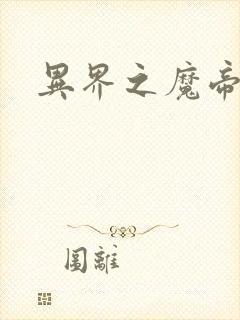 異界之魔帝
圖離